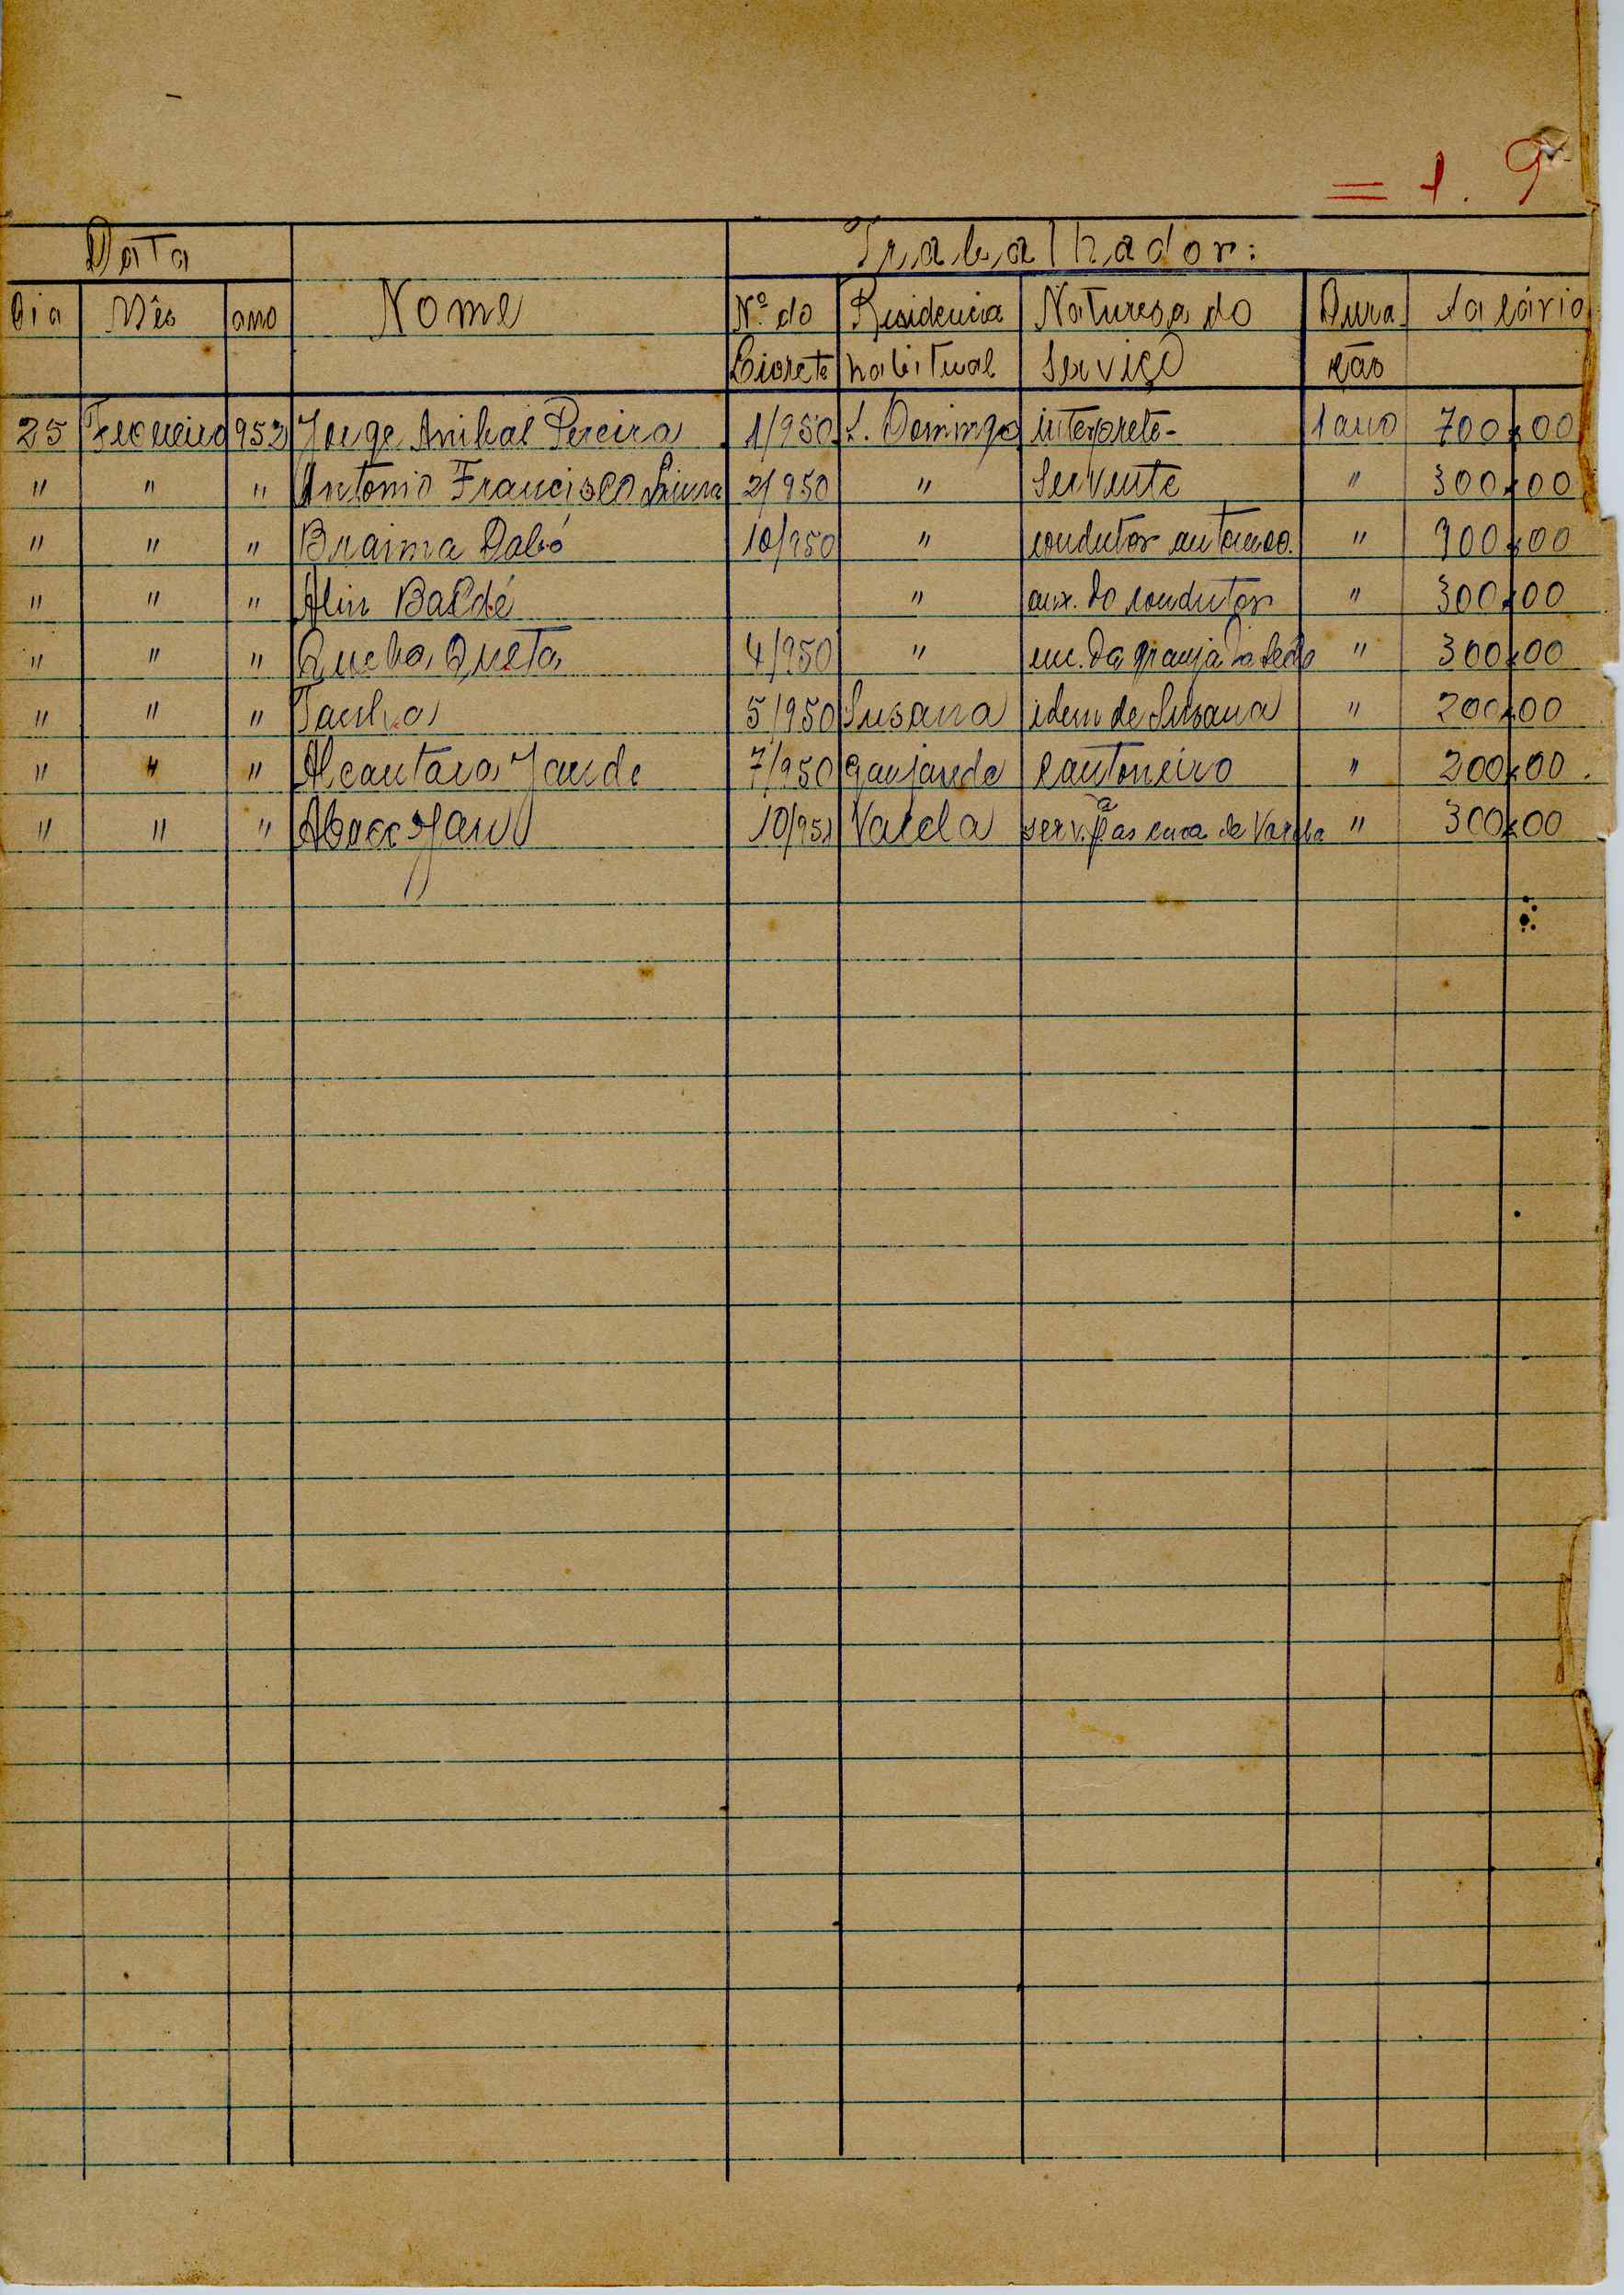 = 1. 9
Data Trabalhador:
Dia Mês ano Nome Nº do Residencia Naturesa do Dura salário
Livrete habitual serviço ção
25 Fevereiro 952 Jorge Anibal Pereira 1/950 S. Domingo interprete- 1 ano 700,00
" " " Antonio Francisco 2/950 " Servente " 300,00
" " " Braima Dabó 10/950 " condutor automo. " 900,00
" " " Aliu Baldé " aux. do condutor " 300,00
" " " Queba Queta 4/950 " enc. da granja da Sede " 300,00
" " " 5/950 Susana idem de Susana " 200,00
" " " Alcantara Jande 7/950 cantoneiro " 200,00.
" " " 10/951 Varela serv. de Varela " 300,00